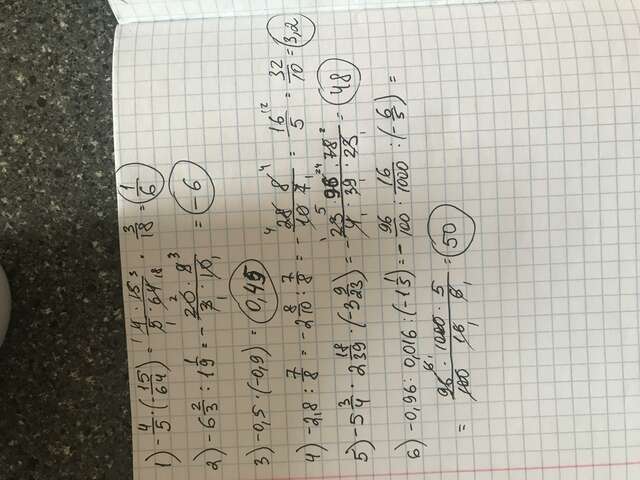 1) -4/5 · (-15/64) = 4 · 15/5 · 64 = 3/18 = 1/6
2) -6 2/3 : 1 1/9 = - 20 · 9/3 · 10 = -6
3) -0,5 · (-0,9) = 0,45
4) -2,8 : 7/8 = -2 8/10 : 7/8 = - 28 8/10 7 = 16/5 = 32/10 = 3,2
5) -5 3/4 · 2 18/39 · (-3 9/23) = - 23 · 96 · 78/4 · 39 · 23 = 48
6) -0,96 : 0,016 : (-1 1/5) = - 96/100 : 16/1000 : (-6/5) =
= 96 · 1000 · 5/100 · 16 · 6 = 50